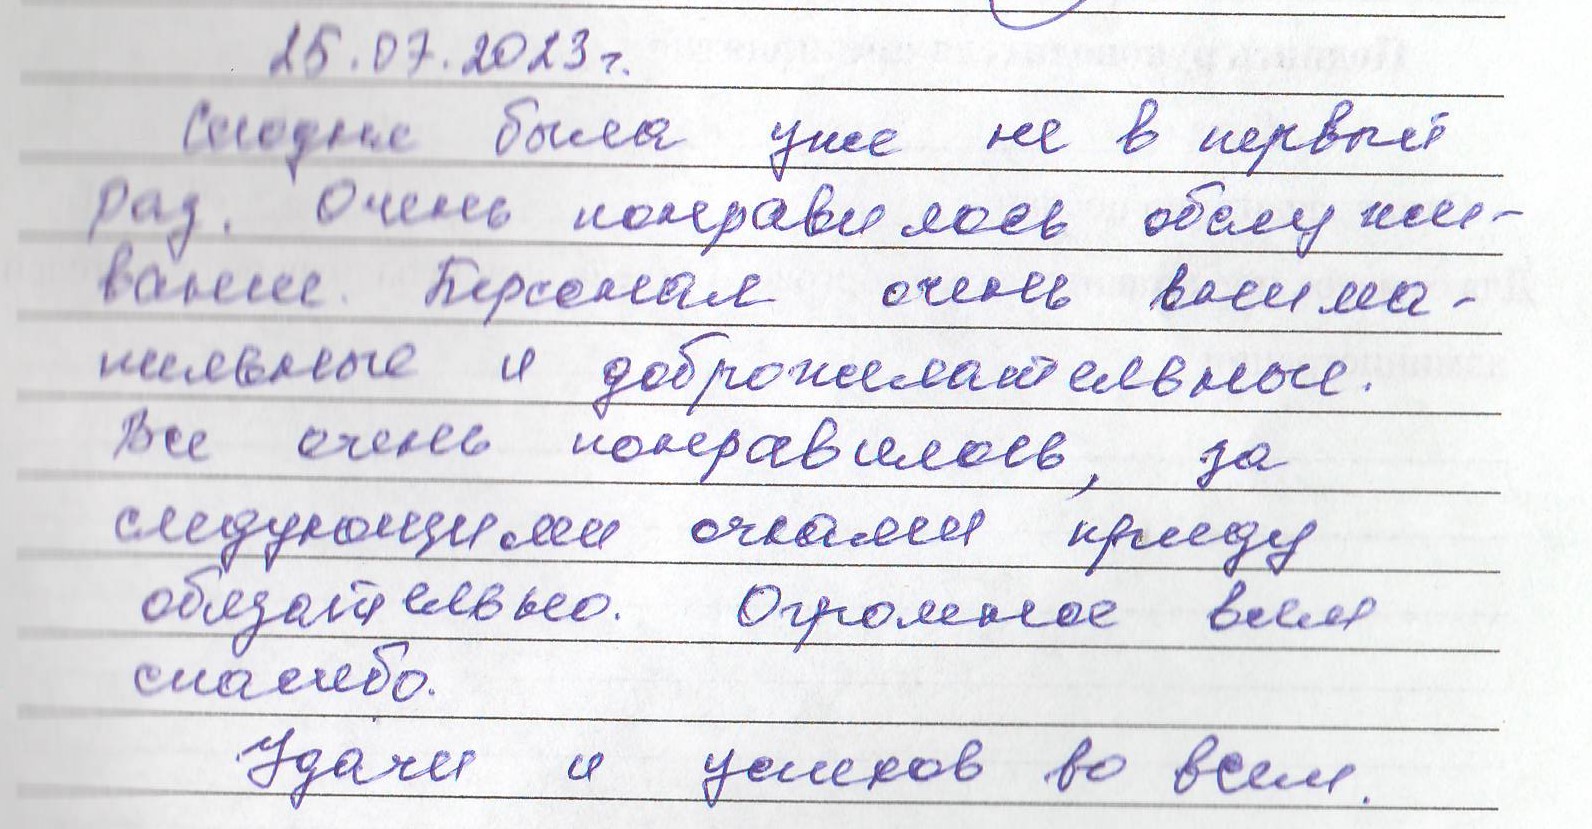 25.07.2023г.
Сегодня была уже не в первый
раз. Очень понравилось обслужи-
вание. Персонал очень внима-
тильные и доброжелательные.
Все очень понравилось, за
следующими очками приду
обязательно. Огромное всем
спасибо.
Удачи и успехов во всем.